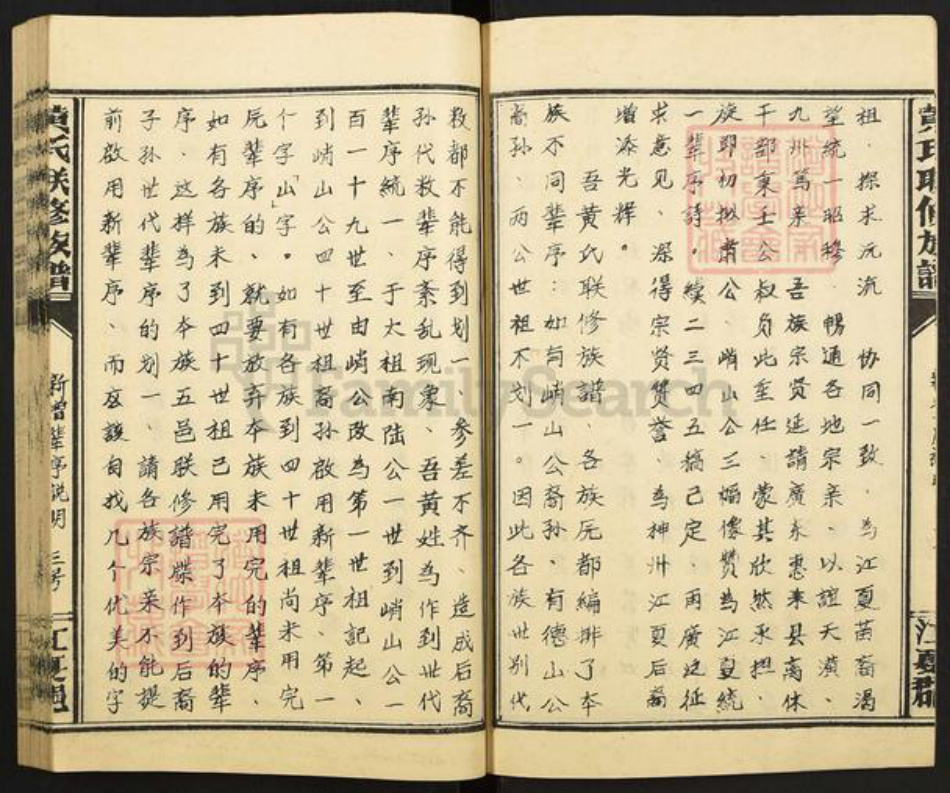 祖、探求沅流 协同一致 为江夏苗裔渴
望统一昭穆、畅通各地宗亲、以谊天潢、
九州篤亲 吾族宗贤延請廣东惠来县离休
干部秉士公叔负此重任、蒙其欣然承担、
旋即初拟肃公、峭山公三幅像赞为江夏統
一辈序詩。續二三四五稿已定、两廣边征
求意见、深得宗贤赞誉、为神州江夏后裔
增添光辉。
吾黄氏联修族譜、各族原都编排了本
族不同辈序：如有峭山公裔孙、有德山公
裔孙、两公世祖不划一。因此各族世别代
数都不能得到划一、参差不齐、造成后裔
孙代数辈序紊乱现象、吾黄姓为作到世代
辈序统一、于太祖南陆公一世到峭山公一
百一十九世至由峭公改为第一世祖記起、
到峭山公四十世祖裔孙啟用新辈序、第一
个字「山」字。如有各族到四十世祖尚未用完
原辈序的、就要放弃本族未用完的辈序、
如有各族未到四十世祖已用完了本族的辈
序、这样为了本族五邑联修譜牒作到后裔
子孙世代辈序的划一、請各族宗亲不能提
前啟用新辈序、而应該自找几个优美的字
黄氏联修族譜
新增辈序説明 三号
江夏
黄氏联修族譜
江夏郡
FamilySearch